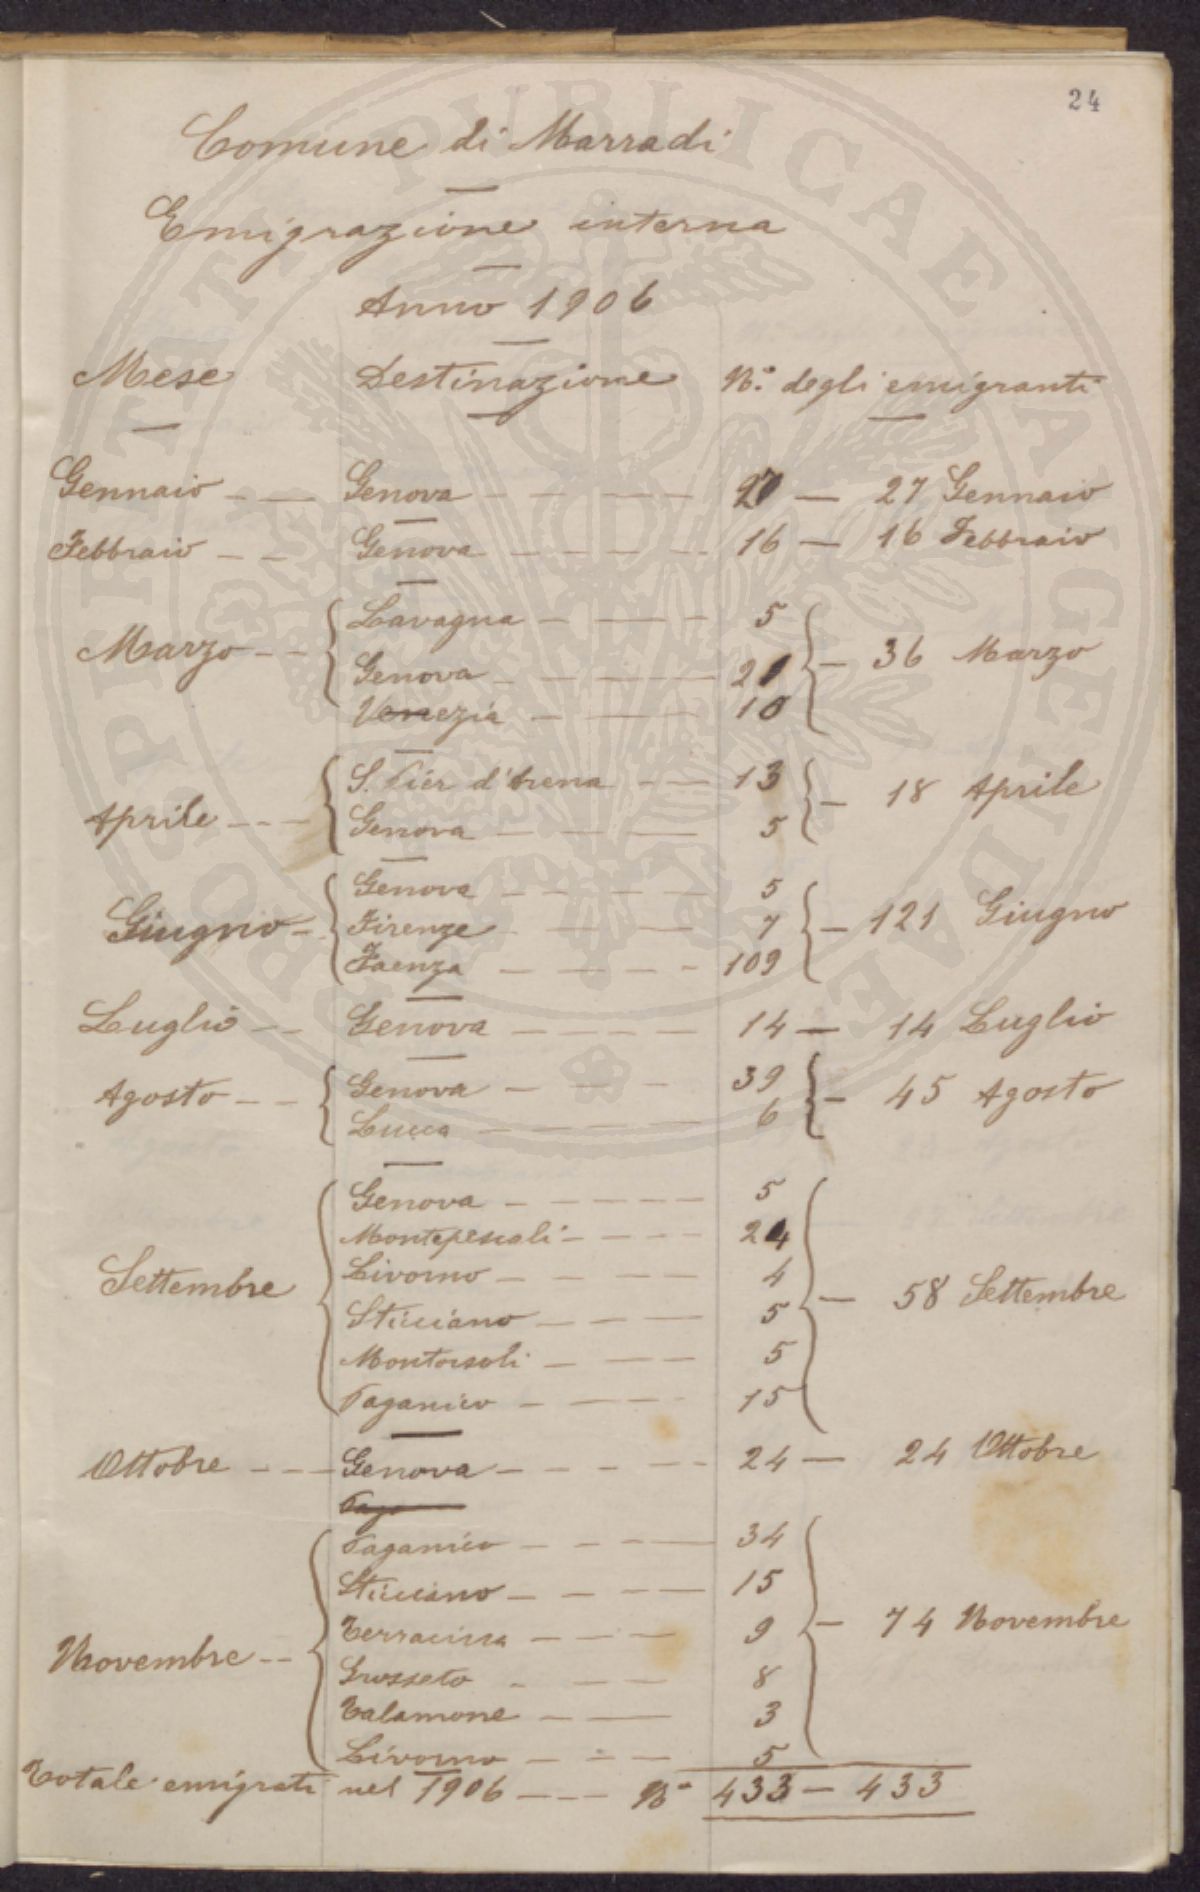 24
Comune di Marradi
Emigrazione interna
Anno 1906
Mese Destinazione N.° degli emigranti
Gennaio Genova 27 — 27 Gennaio
Febbraio Genova 16 — 16 Febbraio
Marzo Lavagna 5
Genova 21 — 36 Marzo
Venezia 10
Aprile S. Pier d'Arena 13 — 18 Aprile
Genova 5
Genova 5
Giugno Firenze 7 — 121 Giugno
Faenza 109
Luglio Genova 14 — 14 Luglio
Agosto Genova 39 — 45 Agosto
Lucca 6
Genova 5
Montepescali 24
Settembre Livorno 4 — 58 Settembre
Sticciano 5
Montorsoli 5
Paganico 15
Ottobre Genova 24 — 24 Ottobre
Paga
Paganico 34
Sticciano 15
Terracina 9 — 74 Novembre
Novembre Grosseto 8
Talamone 3
Livorno 5
Totale emigrati nel 1906 N° 433 — 433
PROSPERITATI PUBLICAE AUGENDAE